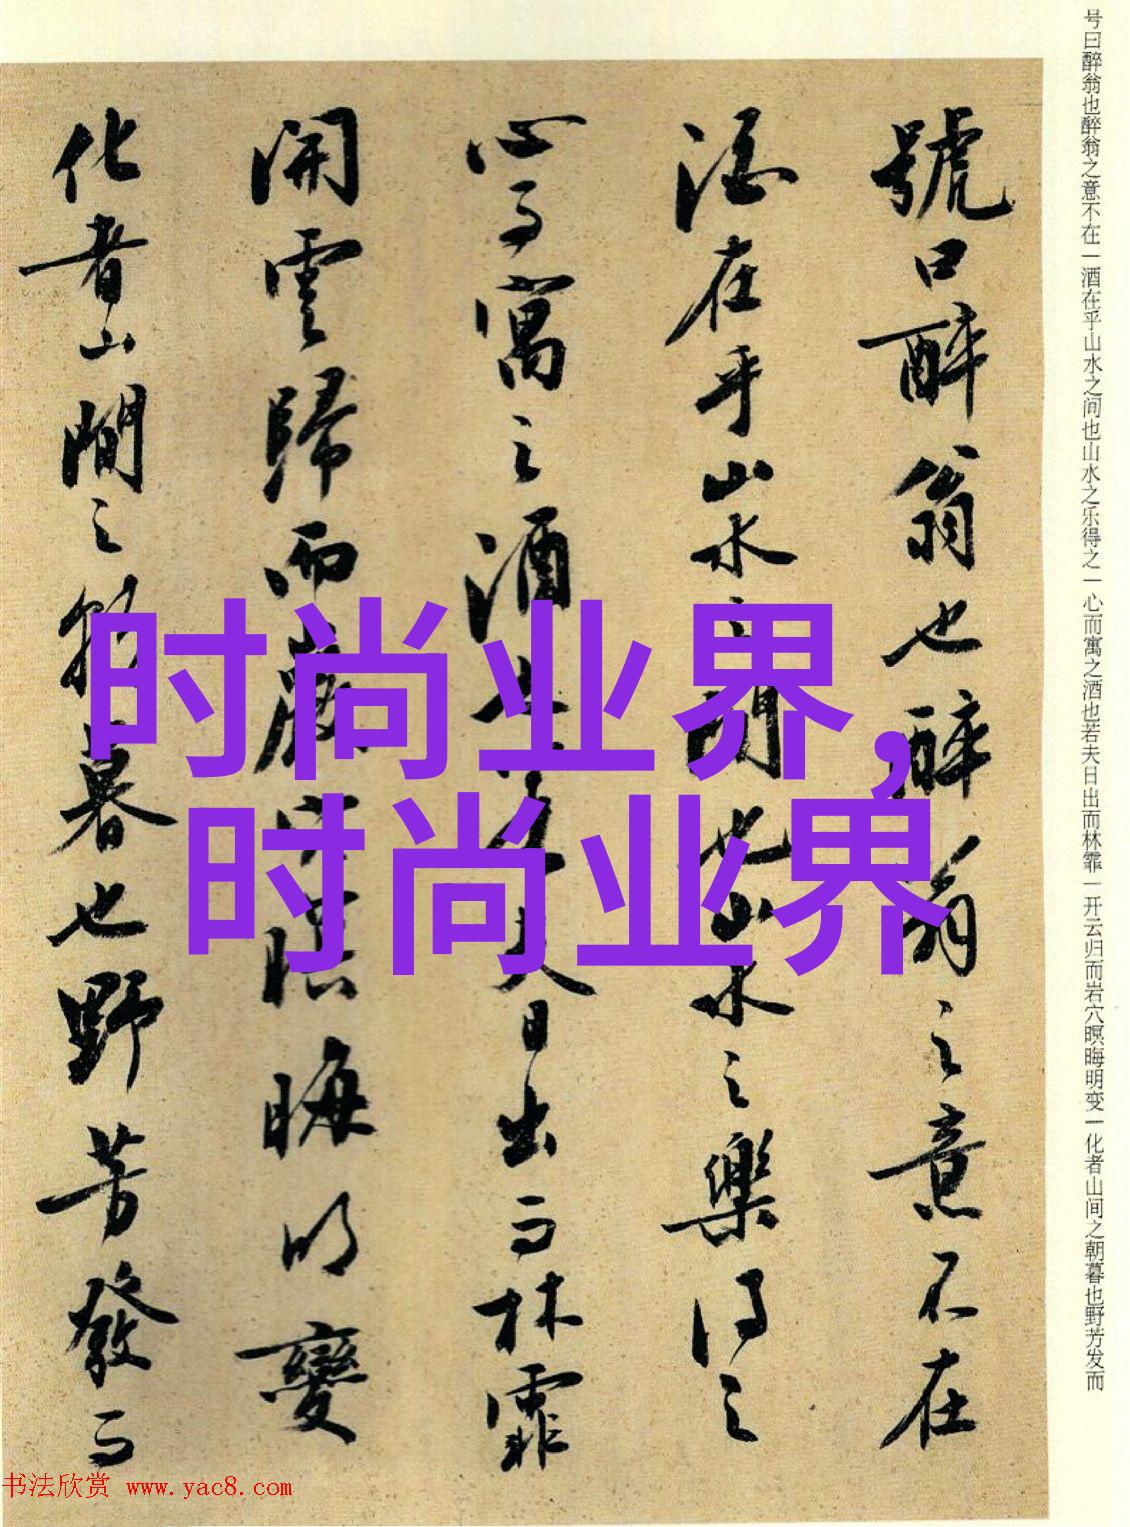 号曰醉翁也醉翁之意不在一酒在乎山水之间也山水之乐得之一心而寓之酒也若夫日出而林霏一开云归而岩穴暝晦明变一化者山间之朝暮也野芳发而
號曰醉翁也醉翁之意不在
酒在乎山水之間也山水之樂得之
心而寓之酒也若夫日出而林霏
開雲歸而巖穴暝晦明變
化者山間之朝暮也野芳發而
时尚业界,
时尚业界
书法欣赏 www.yac8.com